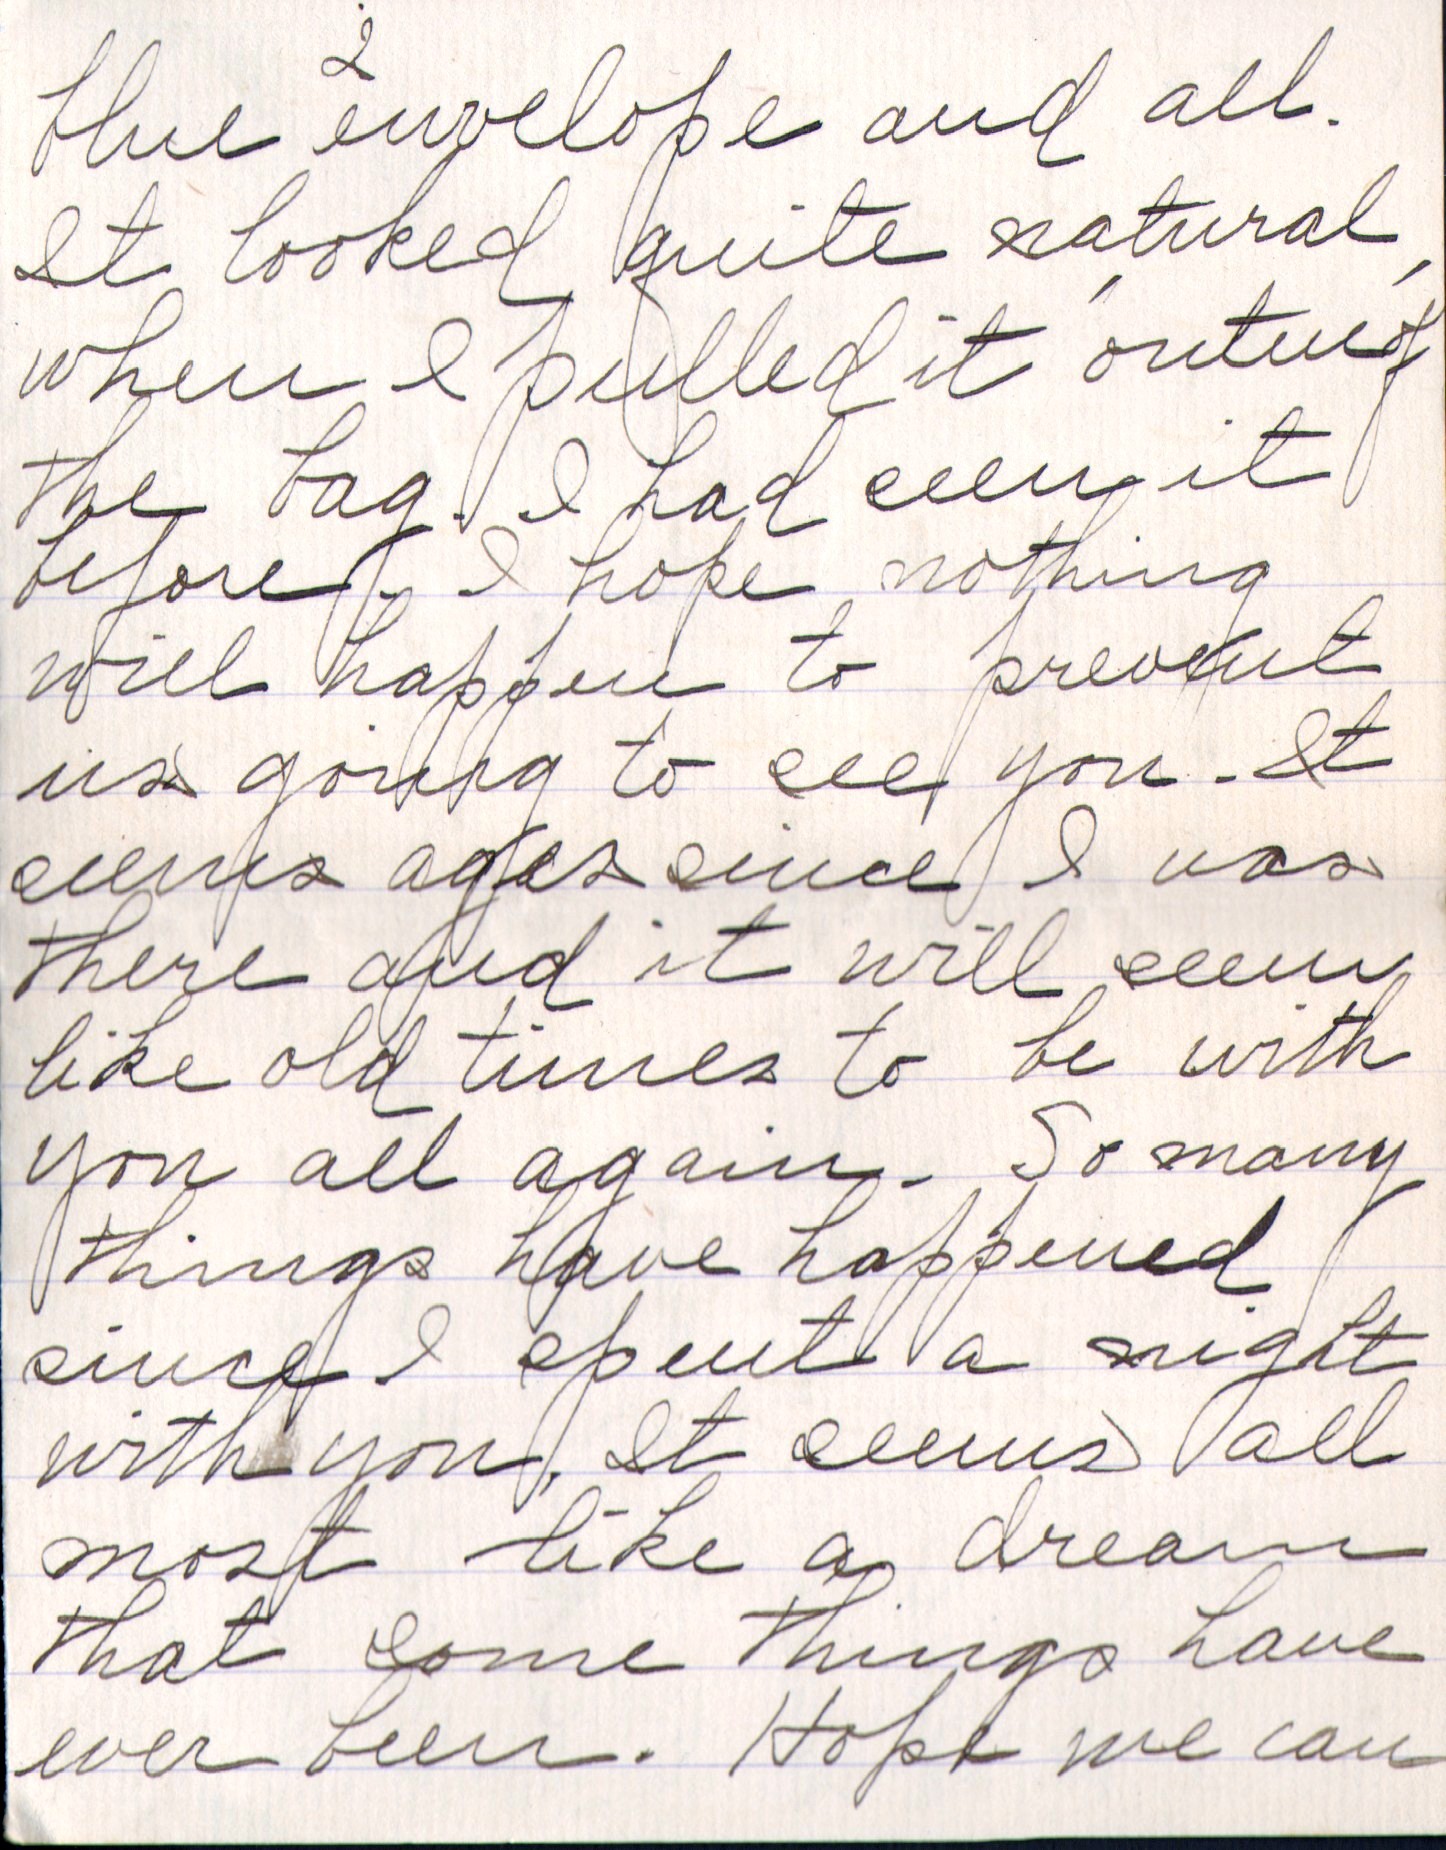 2
blue envelope and all.
It looked quite natural,
when I pulled it out of
the bag. I had seen it
before. I hope nothing
will happen to prevent
us going to see you. It
seems ages since I was
there and it will seem
like old times to be with
you all again. So many
things have happened
since I spent a night
with you. It seems all
most like a dream
that some things have
ever been. Hope we can